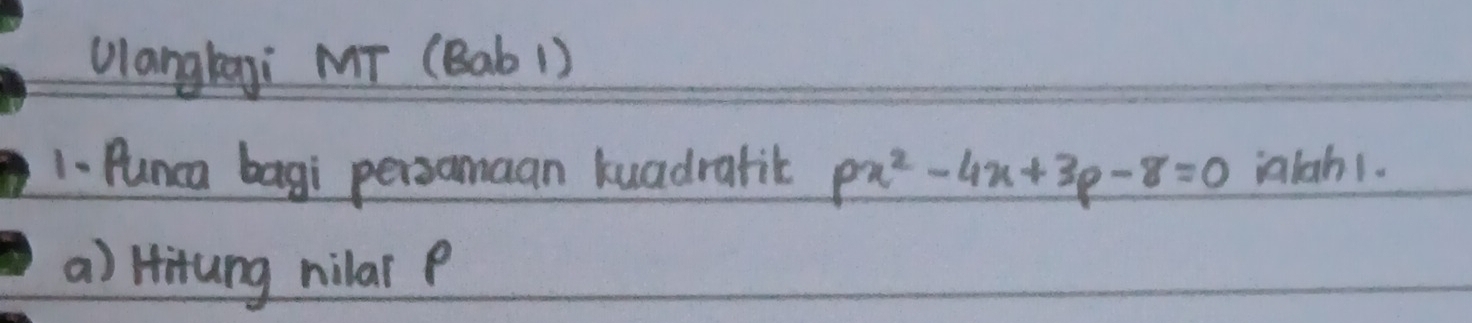 Ulangkaji MT (Bab 1)
1- Punca bagi persamaan kuadratik px² - 4x + 3p - 8 = 0 ialah 1.
a) Hitung nilai P